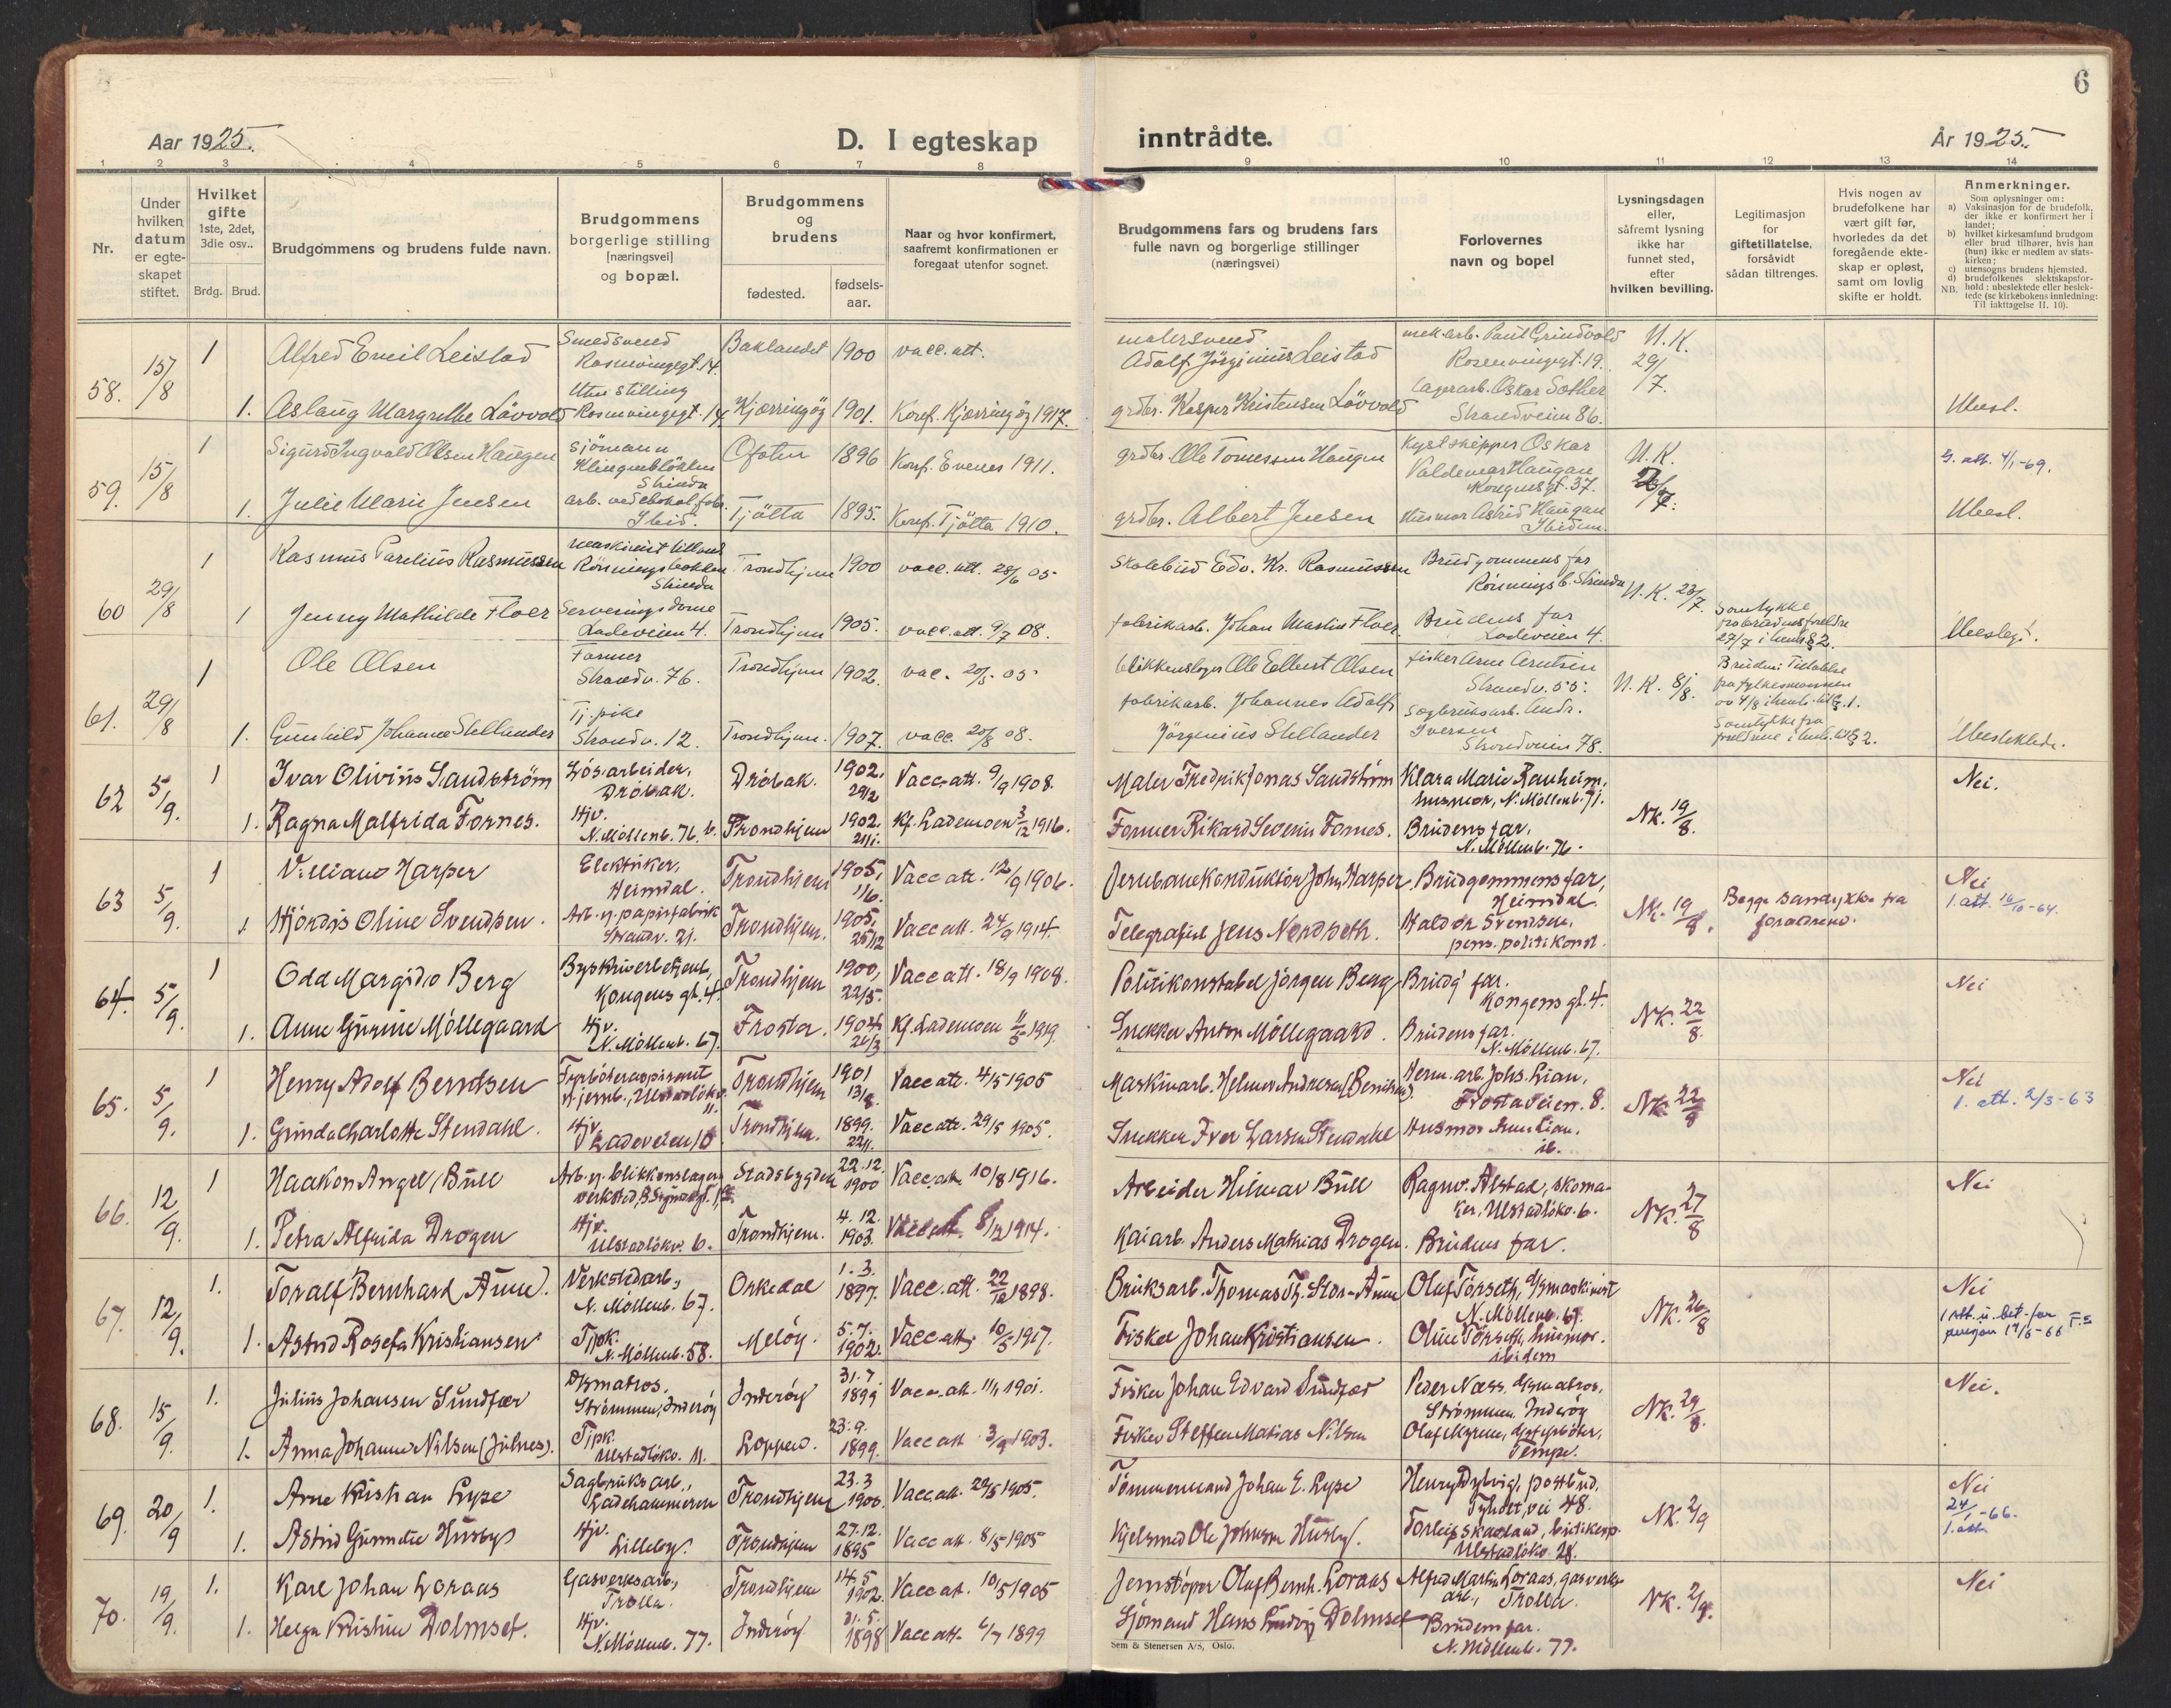 6
Aar 1925.
D. I egteskap inntrådte.
År 1925.
1 2 3 4 5 6 7 8 9 10 11 12 13 14
Nr.
Under hvilken datum er egteskapet stiftet.
Hvilket gifte 1ste, 2det, 3die osv..
Brdg. Brud.
Brudgommens og brudens fulde navn.
Brudgommens borgerlige stilling [næringsvei] og bopæl.
Brudgommens og brudens
fødested.
fødselsaar.
Naar og hvor konfirmert, saafremt konfirmationen er foregaat utenfor sognet.
Brudgommens fars og brudens fars fulle navn og borgerlige stillinger (næringsvei)
Forlovernes navn og bopel
Lysningsdagen eller, såfremt lysning ikke har funnet sted, efter hvilken bevilling.
Legitimasjon for giftetillatelse, forsåvidt sådan tiltrenges.
Hvis nogen av brudefolkene har vært gift før, hvorledes da det foregående ekteskap er opløst, samt om lovlig skifte er holdt.
Anmerkninger.
Som oplysninger om:
a) Vaksinasjon for de brudefolk, der ikke er konfirmert her i landet;
b) hvilket kirkesamfund brudgom eller brud tilhører, hvis han (hun) ikke er medlem av statskirken;
c) utensogns brudens hjemsted.
d) brudefolkenes slektskapsforhold: ubeslektede eller beslektede (se kirkebokens innledning: Til iakttagelse II. 10).
NB.
58. 15/8 1 Alfred Emil Leistad Smedsvend Rosenvingegt. 14. Baklandet 1900 vacc. att. malersvend Adolf Jørginius Leistad mek. arb. Paul Grindvold Rosenvingegt. 19. N.K. 29/7.
1. Aslaug Margrethe Lövvold Uten stilling Rosenvingegt. 14 Kjærringöy 1901. Konf. Kjærringöy 1917. grdbr. Kasper Kristensen Lövvold lagerarb. Oskar Sæther Strandveien 86. Ubesl.
59. 15/8 1 Sigurd Ingvald Olsen Haugen Sjömann Strinda Ofoten 1896 Konf. Evenes 1911. grdbr. Ole Tomessen Haugen Kystskipper Oskar Valdemar Haugan Kongensgt. 37. N.K.
1. Julie Marie Jensen Ibid. Tjötta 1895. Konf. Tjötta 1910. grdbr. Albert Jensen Husmor Astrid Haugan Ibidem. Ubesl.
60 29/8 1 Rasmus Parelius Rasmussen Strinda Trondhjem 1900 vacc. att. 28/6 05 Skolebud Edv. Kr. Rasmussen Brudgommens far Rönningsb. Strinda N.K. 23/7.
1 Jenny Mathilde Floer Serveringsdame Ladeveien 4. Trondhjem 1905. vacc. att. 9/7 08. fabrikarb. Johan Martin Floer Brudens far Ladeveien 4. Samtykke fra brudens foreldre
61. 29/8 1 Ole Olsen Former Strandv. 76. Trondhjem 1902. vac. 20/5 05 blikkenslager Ole Edbert Olsen fisker Arne Arntsen Strandv. 55. N.K. 8/8.
1. Gunhild Johanne Stellander Tj. pike Strandv. 12. Trondhjem. 1907. vacc. 20/8 08. fabrikarb. Johannes Adolf Jörgenius Stellander Sagbruksarb. Andr. Iversen Strandveien 78. Samtykke fra
62 5/9. 1 Ivar Olivius Sandström Lösarbeider, Dröbak. Dröbak. 1902. 29/2 Vacc. att. 9/9 1908. Maler Fredrik Jonas Sandström Klara Marie Ranheim, husmor, N. Möllenb. 71. NK. 19/8. Nei.
1. Ragna Malfrida Fornes. Hjv. N. Möllenb. 76. b. Trondhjem 1902. Kf. Lademoen 3/12 1916. Former Rikard Severin Fornes. Brudens far, N. Möllenb. 76.
63 5/9. 1 Villiam Harper Elektriker, Heimdal. Trondhjem 1905, 1/6. Vacc att. 12/9 1906. Jernbanekonduktör John Harper Brudgommens far, Heimdal. NK. 19/8. Begge samtykke fra foreldrene. Nei
1 Hjördis Oline Svendsen. Arb. v. papirfabrik Strandv. 21. Trondhjem. 1905, 25/12 Vacc att. 24/9 1914. Haldor Svendsen, pens. politikonst.
64. 5/9. 1 Odd Margido Berg Kongens gt. 4. Trondhjem 1900, 22/5. Vacc att. 18/9 1908. Politikonstabel Jörgen Berg Brudg. far. Kongens gt. 4. NK. 22/8. Nei
1. Anne Gurine Möllegaard Hjv. N. Möllenb. 67. Frosta. 1904 Kf. Lademoen 1919. Snekker Anton Möllegaard. Brudens far. N. Möllenb. 67.
65. 5/9. 1 Henry Adolf Berntsen Trondhjem 1901 Vacc att. 4/5 1905 Maskinarb. Helmer Andresen (Berntsen). Herm. arb. Johs. Lian, Frostaveien 8. NK. 22/8 Nei 1. att. 2/3-63
1. Gunda Charlotte Stendahl. Hjv. Ladeveien 10 Trondhjem. 1899. Vacc att. 29/5 1905. Snekker Iver Larsen Stendahl Husmor Lian, ib.
66. 12/9. 1 Haakon Angel Bull Stadsbygden 22.12. 1900 Vacc. att. 10/8 1916. Arbeider Hilmar Bull Ragnv. Alstad, skomaker, Ulstadlökv. 6. NK. 27/8 Nei
1. Petra Alfrida Drogen Hjv. Ulstadlökv. 6. Trondhjem. 4.12. 1903. Vacc att. 8/12 1914. Kaiarb. Anders Mathias Drogen. Brudens far.
67. 12/9. 1. Toralf Bernhard Aune. Verkstedarb., N. Möllenb. 67. Orkedal 1.3. 1897. Vacc. att. 22/12 1898. Bruksarb. Thomas Th. Stor-Aune Olaf Törseth, N. Möllenb. 67. NK. 26/8 Nei
1. Astrid Rosefa Kristiansen Tjpk. N. Möllenb. 58. Melöy. 5.7. 1902. Vacc att. 10/5 1907. Fisker Johan Kristiansen. Oline Törseth, husmor. ibidem
68. 15/9. 1. Julius Johansen Sundfær Dsmatros. Strömmen, Inderöy Inderöy 31.7. 1899 Vacc. att. 11/1 1901. Fisker Johan Edvard Sundfær Peder Næss, Strömmen, Inderöy NK. 29/8. Nei.
1. Anna Johanne Nilsen (Julnes). Tjpk. Ulstadlökv. 11. Loppen. 23.9. 1899. Vacc att 3/9 1903. Fisker Steffen Matias Nilsen Tempe.
69. 20/9 1. Arne Kristian Lype Sagbruksarb., Ladehammeren Trondhjem 23.3 1900. Vacc. att. 1905. Tömmermand Johan E. Lype Henry Dybvig, postbud, NK. 2/9 Nei 24/1-66. 1. att
1. Astrid Husby Hjv. Lilleby. Trondhjem 27.12. 1895 Vacc att. 8/5 1905 Kjelsmed Ole Johnsen Husby. Torleif Skaaland, Ulstadlökv. 28.
70. 19/9. 1. Karl Johan Loraas Gasverksarb., Trolla. Trondhjem 14.5 1902. Vacc at. 10/5 1905 Jernstöper Olaf Bernh. Loraas Alfred Martin Loraas, gasverksarb., Trolla. NK. 2/9. Nei
1. Helga Kristine Dolmset. Hjv. N. Möllenb. 77. Inderöy 31.5. 1898 Vacc att. 6/7 1899 Sjömand Hans Ludvig Dolmset Brudens far. N. Möllenb. 77.
Sem & Stenersen A/S, Oslo.